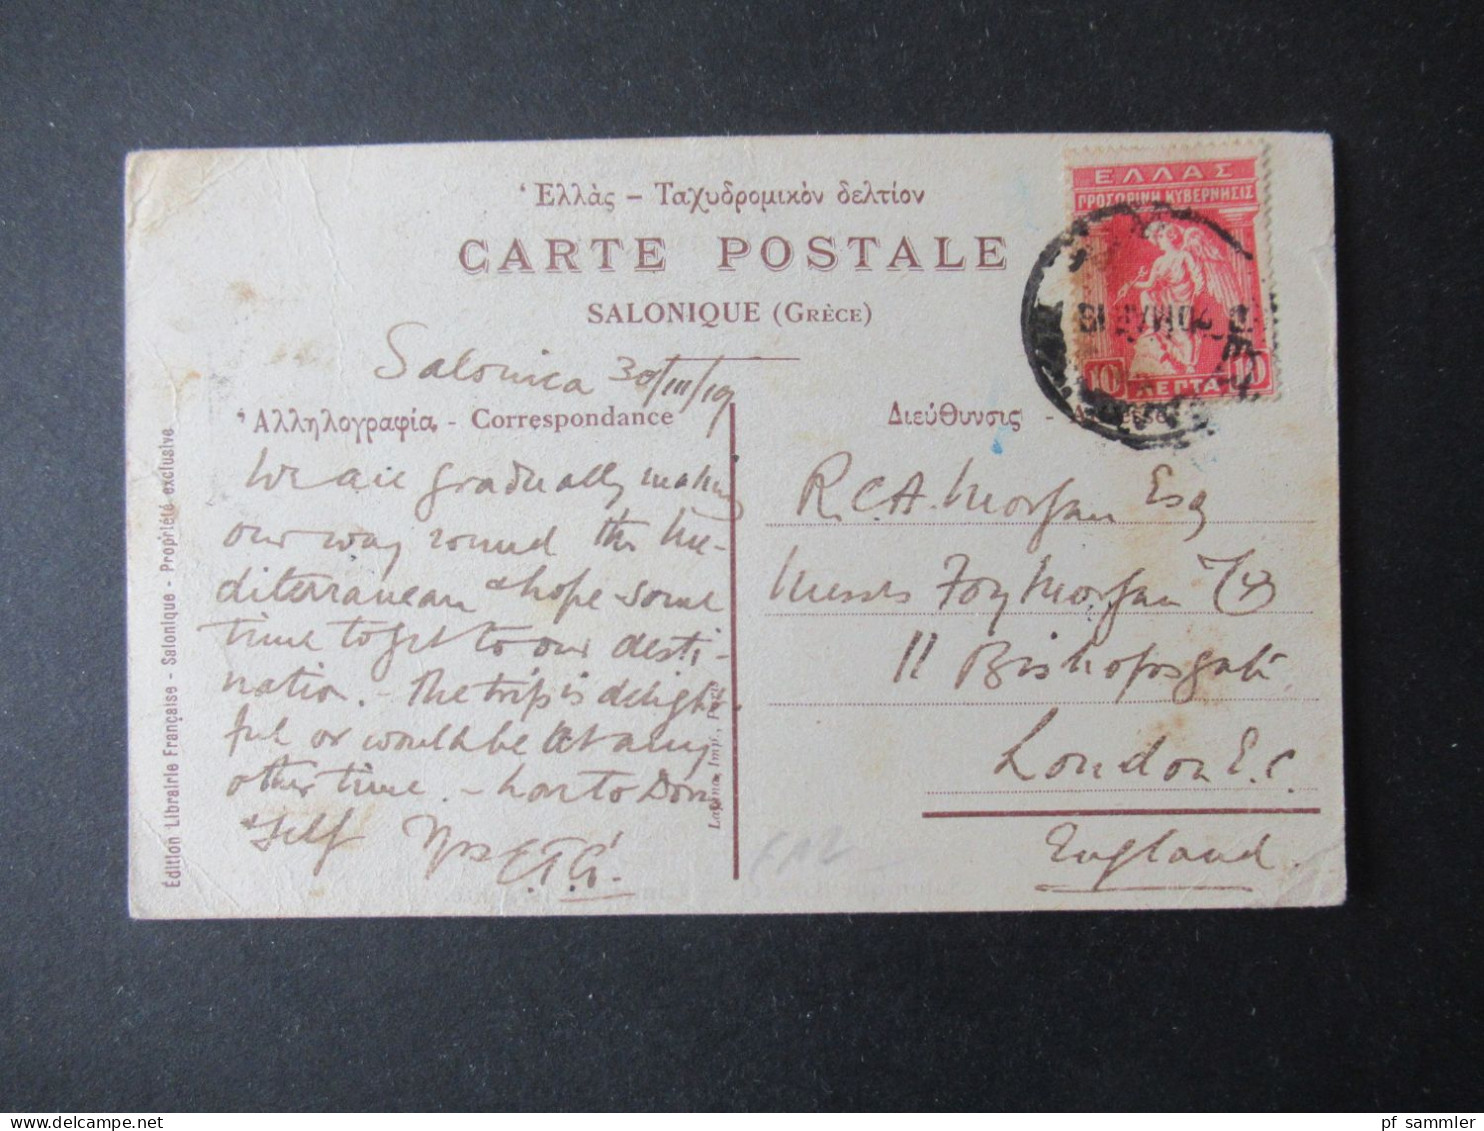 Ἑλλὰς – Ταχυδρομικὸν δελτίον
CARTE POSTALE
SALONIQUE (GRÈCE)
ΕΛΛΑΣ
ΠΡΟΣΩΡΙΝΗ ΚΥΒΕΡΝΗΣΙΣ
10 ΛΕΠΤΑ 10
Salonica 30/III/19
Ἀλληλογραφία - Correspondance
We are gradually making
our way round the Me-
diterranean & hope some
time to get to our desti-
nation. - The trip is delight-
ful or would be at any
other time. - to Dora
& self Yrs E.T.G.
Διεύθυνσις -
R.C.A. Morgan Esq
Messrs Foy Morgan & Co
11 Bishopsgate
London E.C.
England.
Édition Librairie Française - Salonique - Propriété exclusive
Imp., Paris
pf sammler